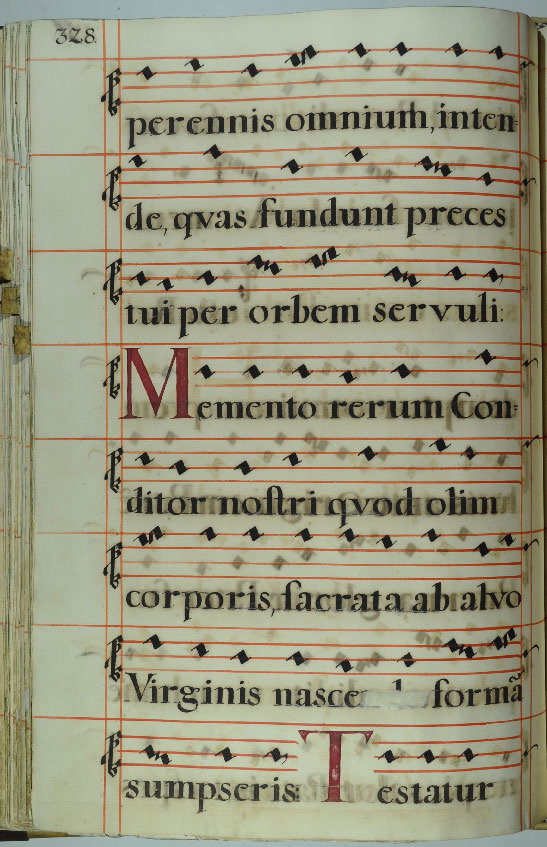 328.
perennis omnium, inten=
de, qvas fundunt preces
tui per orbem servuli:
Memento rerum Con=
ditor noſtri qvod olim
corporis, ſacrata ab alvo
Virginis formã
sumpseris: Testatur